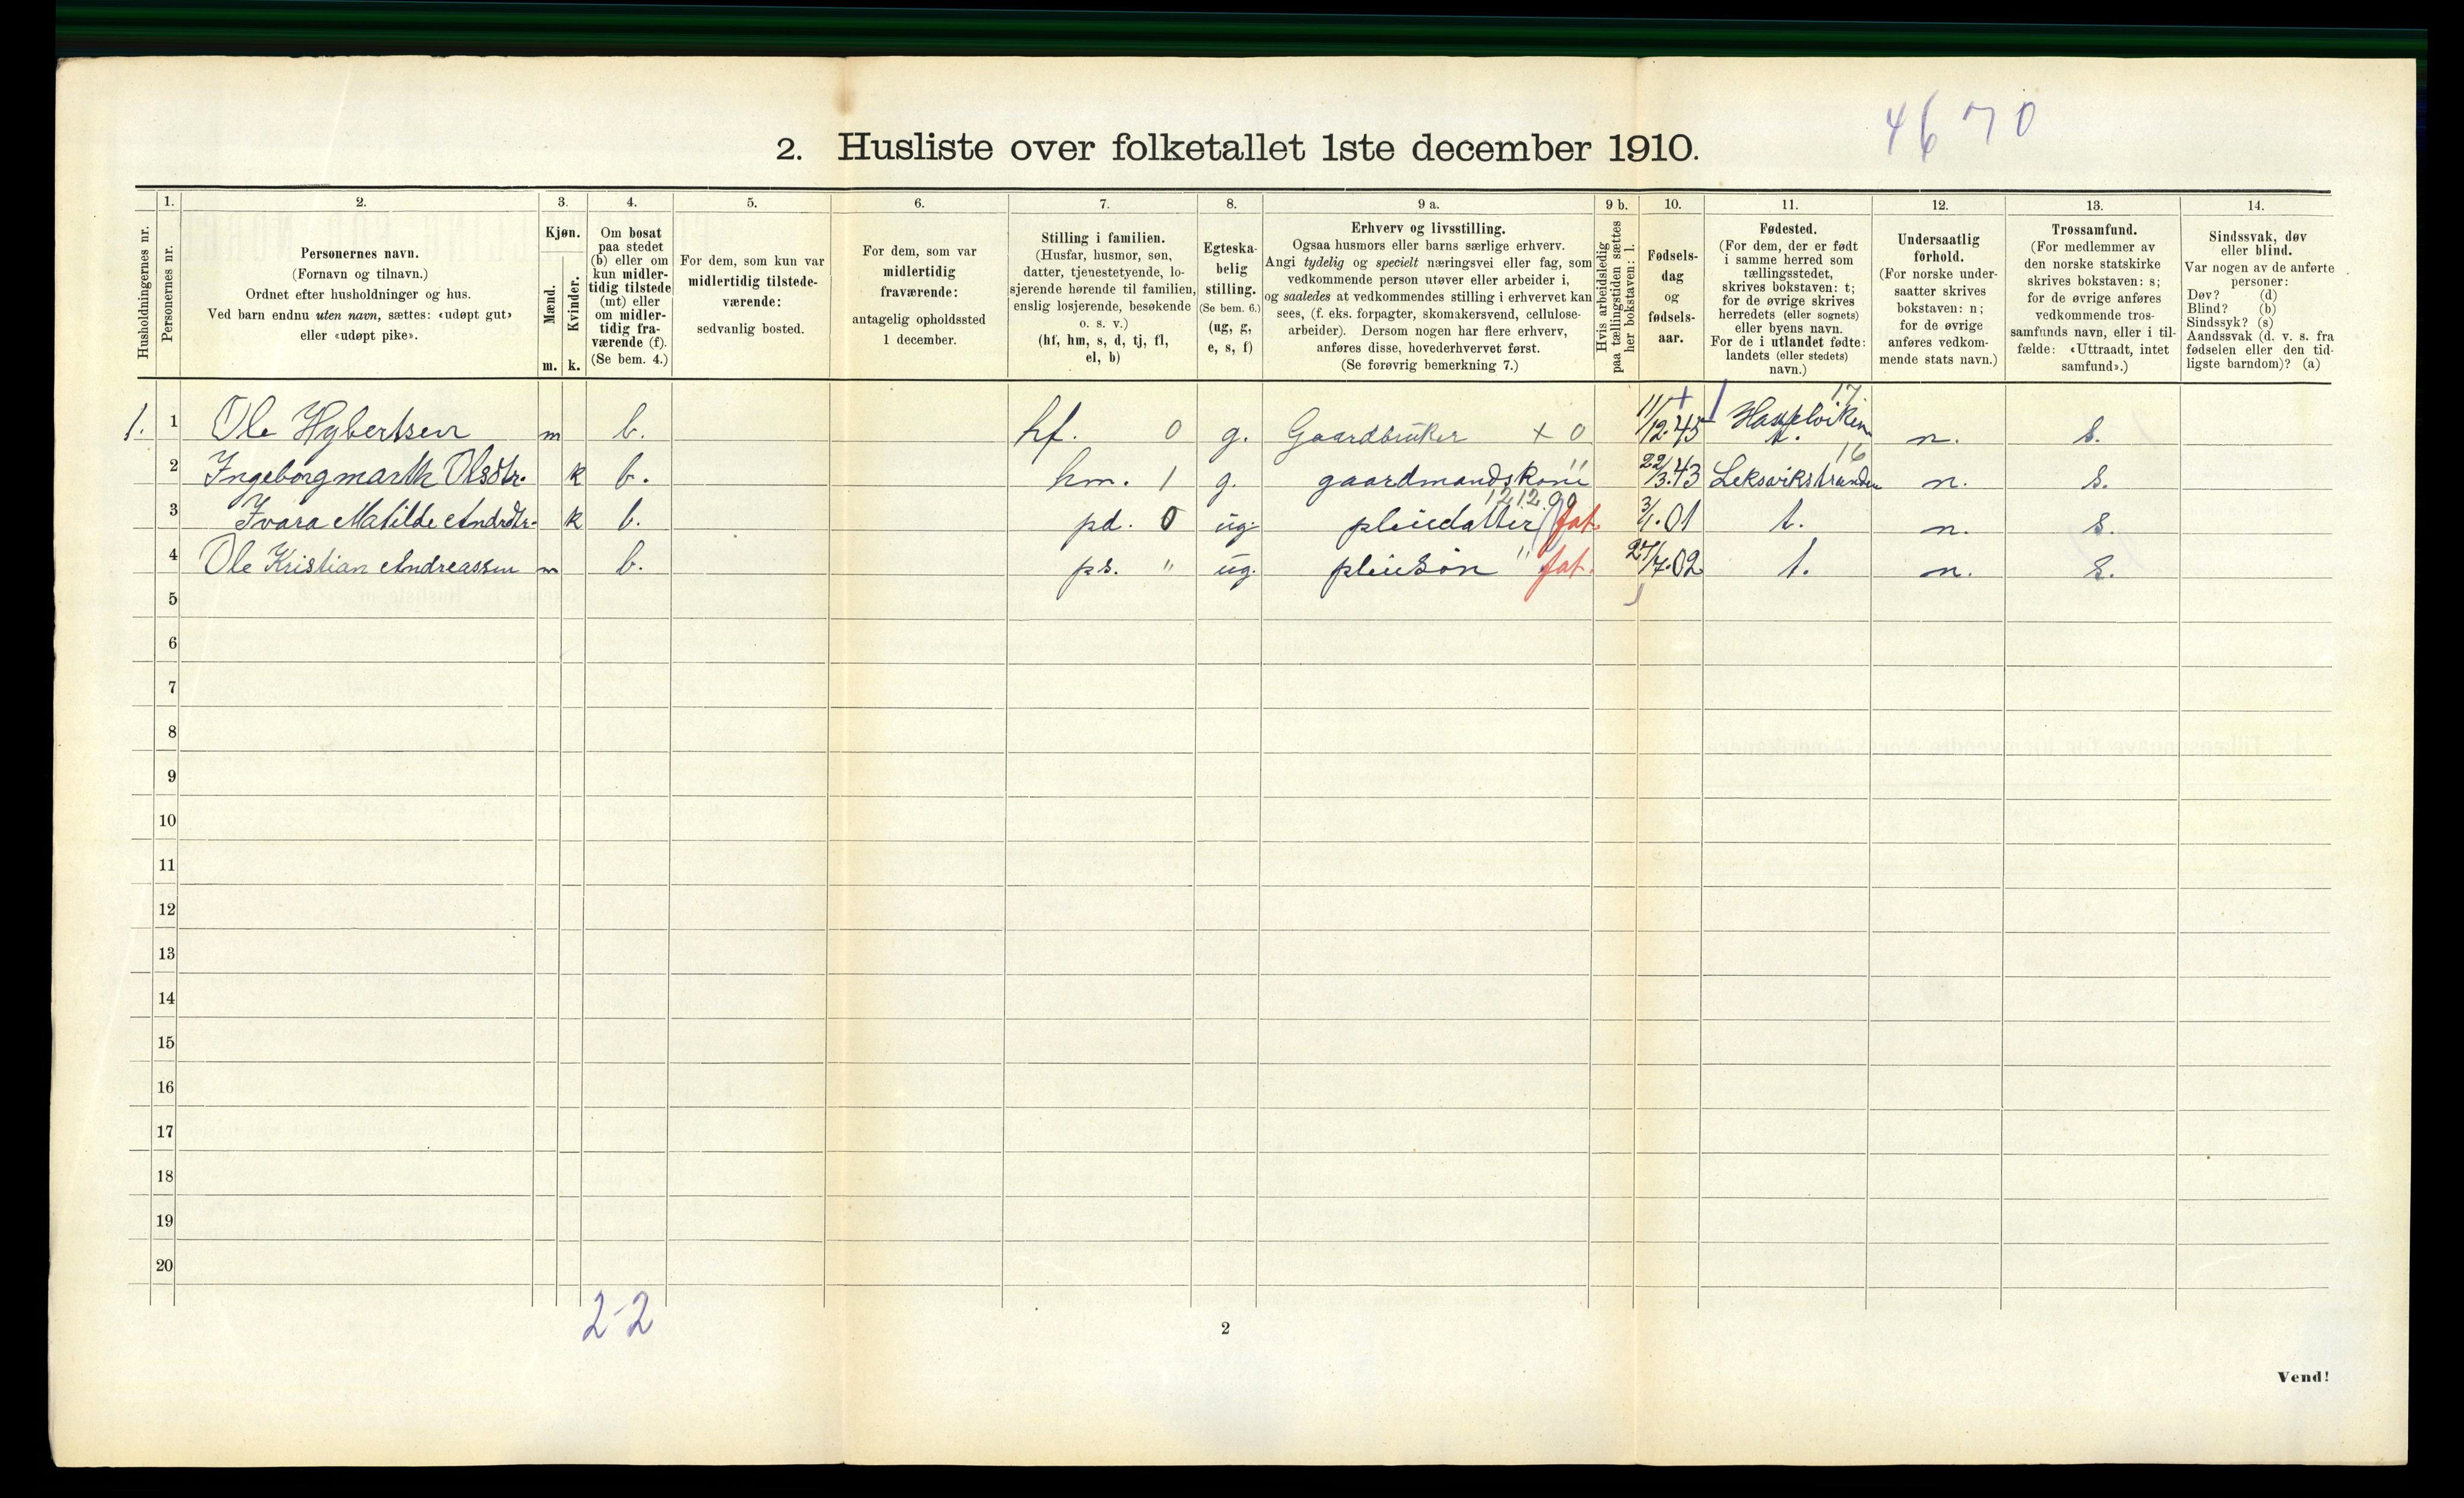 4670
2. Husliste over folketallet 1ste december 1910.
Husholdningernes nr.
1.
Personernes nr.
2.
Personernes navn.
(Fornavn og tilnavn.)
Ordnet efter husholdninger og hus.
Ved barn endnu uten navn, sættes: «udøpt gut»
eller «udøpt pike».
3.
Kjøn.
Mænd.
Kvinder.
m. k.
4.
Om bosat
paa stedet
(b) eller om
kun midler-
tidig tilstede
(mt) eller
om midler-
tidig fra-
værende (f).
(Se bem. 4.)
5.
For dem, som kun var
midlertidig tilstede-
værende:
sedvanlig bosted.
6.
For dem, som var
midlertidig
fraværende:
antagelig opholdssted
1 december.
7.
Stilling i familien.
(Husfar, husmor, søn,
datter, tjenestetyende, lo-
sjerende hørende til familien,
enslig losjerende, besøkende
o. s. v.)
(hf, hm, s, d, tj, fl,
el, b)
8.
Egteska-
belig
stilling.
(Se bem. 6.)
(ug, g,
e, s, f)
9 a.
Erhverv og livsstilling.
Ogsaa husmors eller barns særlige erhverv.
Angi tydelig og specielt næringsvei eller fag, som
vedkommende person utøver eller arbeider i,
og saaledes at vedkommendes stilling i erhvervet kan
sees, (f. eks. forpagter, skomakersvend, cellulose-
arbeider). Dersom nogen har flere erhverv,
anføres disse, hovederhvervet først.
(Se forøvrig bemerkning 7.)
9 b.
Hvis arbeidsledig
paa tællingstiden sættes
her bokstaven: l.
10.
Fødsels-
dag
og
fødsels-
aar.
11.
Fødested.
(For dem, der er født
i samme herred som
tællingsstedet,
skrives bokstaven: t;
for de øvrige skrives
herredets (eller sognets)
eller byens navn.
For de i utlandet fødte:
landets (eller stedets)
navn.)
12.
Undersaatlig
forhold.
(For norske under-
saatter skrives
bokstaven: n;
for de øvrige
anføres vedkom-
mende stats navn.)
13.
Trossamfund.
(For medlemmer av
den norske statskirke
skrives bokstaven: s;
for de øvrige anføres
vedkommende tros-
samfunds navn, eller i til-
fælde: «Uttraadt, intet
samfund».)
14.
Sindssvak, døv
eller blind.
Var nogen av de anførte
personer:
Døv? (d)
Blind? (b)
Sindssyk? (s)
Aandssvak (d. v. s. fra
fødselen eller den tid-
ligste barndom)? (a)
17
1. 1 Ole Hybertsen m b. hf. 0 g. Gaardbruker + 0 11/12.45 t. n. s.
16
2 Ingeborgmarth Olsdtr. k b. hm. 1 g. gaardmandskone " 22/3.43 Leksvikstranden n. s.
12.12.09
3 Ivara Matilde Andrdtr. k b. pd. 0 ug. pleiedatter fat. 3/1.01 t. n. s.
4 Ole Kristian Andreassen m b. ps. " ug. pleiesøn " fat. 27/7.02 t. n. s.
5
6
7
8
9
10
11
12
13
14
15
16
17
18
19
20
2-2
2
Vend!